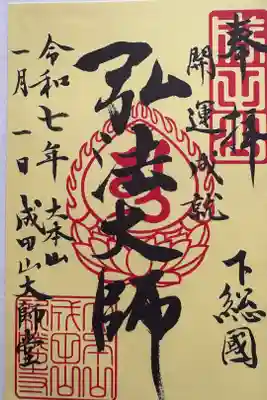 奉拝
開運成就
下総國
弘法大師
令和七年
一月一日
大本山
成田山大師堂